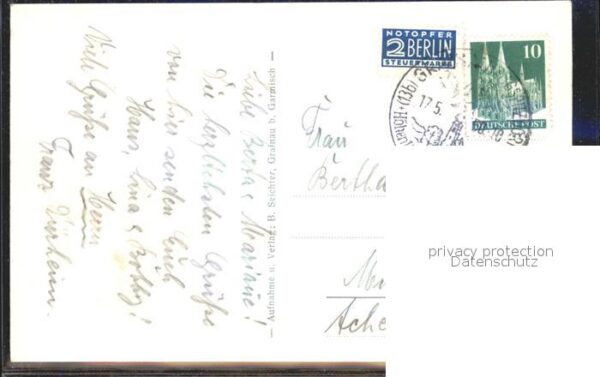 Liebe Bertha & Marianne!
Die herzlichsten Grüße
von hier senden Euch
Hans, Lina & Bobby!
Viele Grüße an Herrn
Franz
Aufnahme u. Verlag: B. Seichter, Grainau b. Garmisch
NOTOPFER
2 BERLIN
STEUERMARKE
10
DEUTSCHE POST
(13b) GR
17.5.
Frau
Bertha
privacy protection
Datenschutz